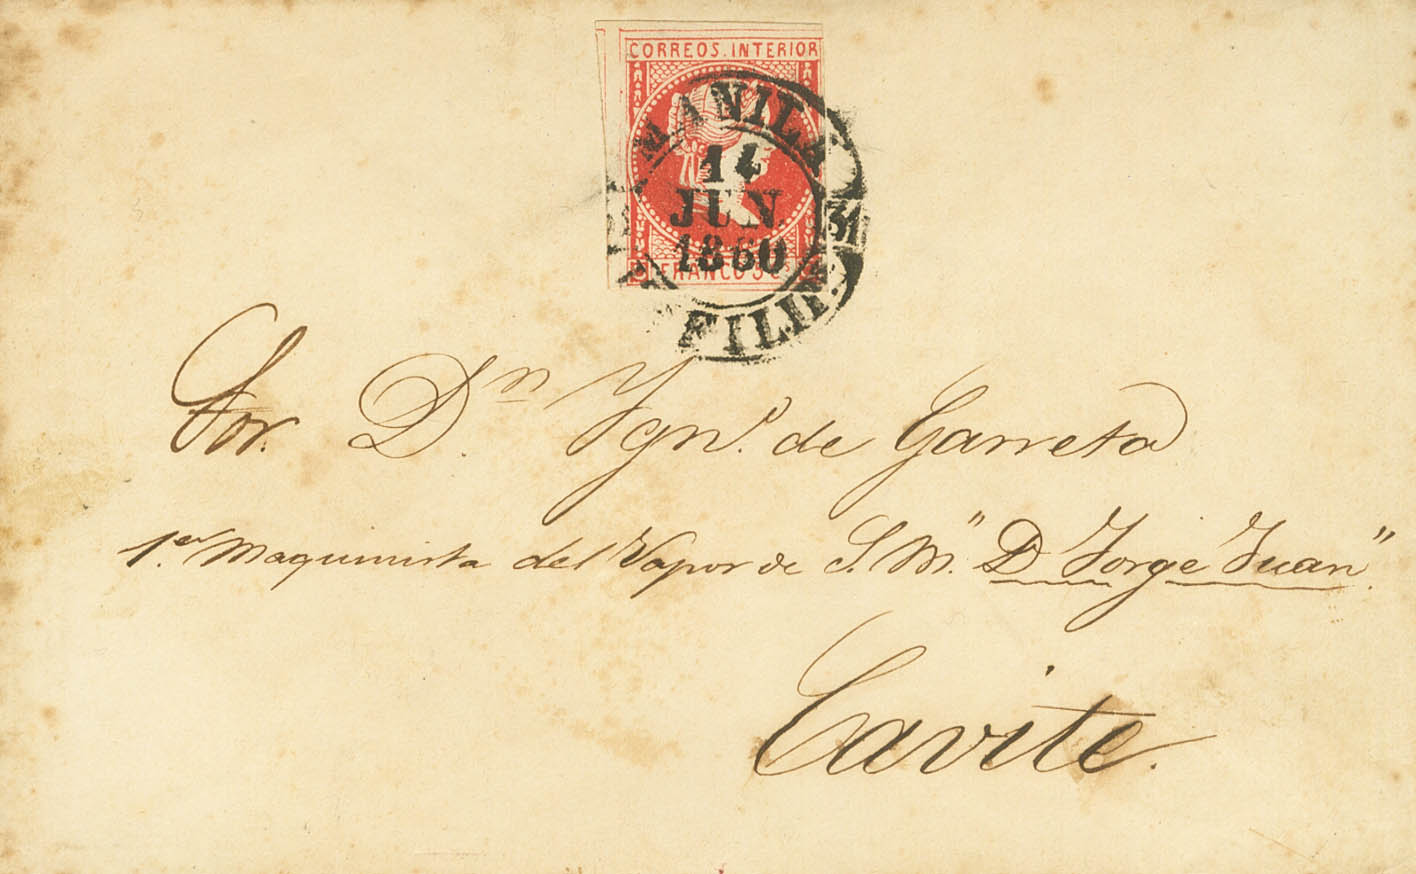 CORREOS. INTERIOR
MANILA
14
JUN
1860
31
FRANCO
FILIP.
Sor. Dn. Ygno. de Garreta
1.er Maquinista del Vapor de S. M. "Dn Jorge Juan".
Cavite.